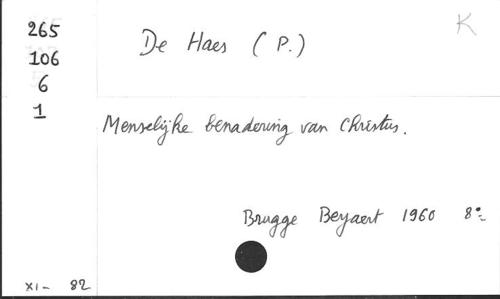 K
265
De Haes (P.)
106
6
1
Menselijke benadering van Christus.
Brugge Beyaert 1960 8°
XI - 82